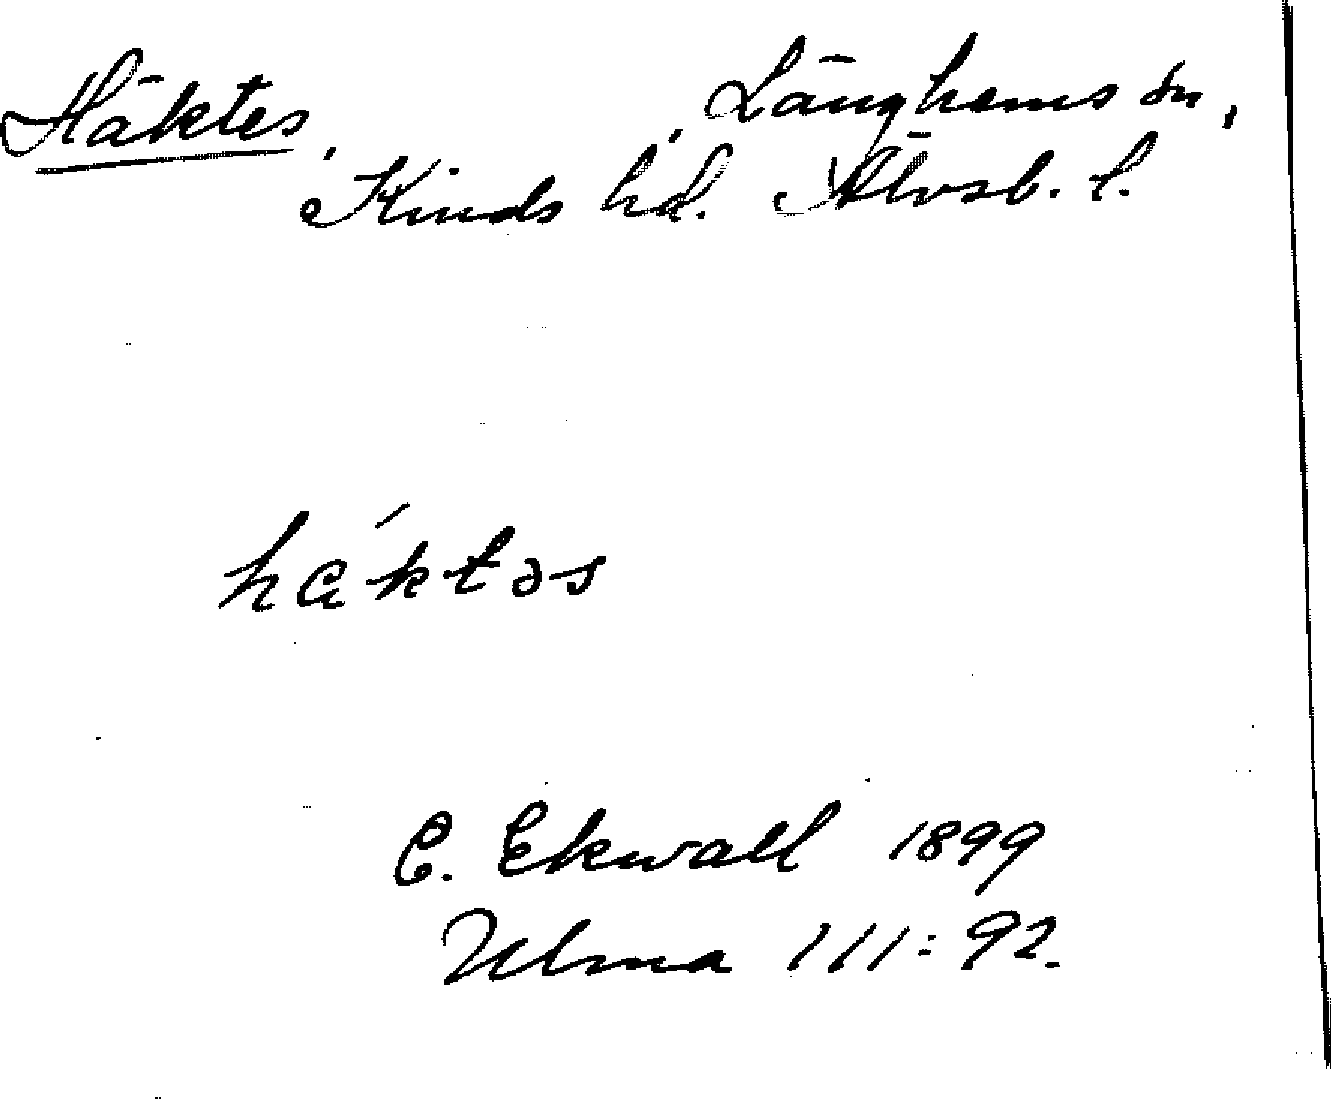 Häktes, Länghems sn,
Kinds hd. Älvsb. l.
hǽktəs
E. Ekwall 1899
Ulma 111:92.